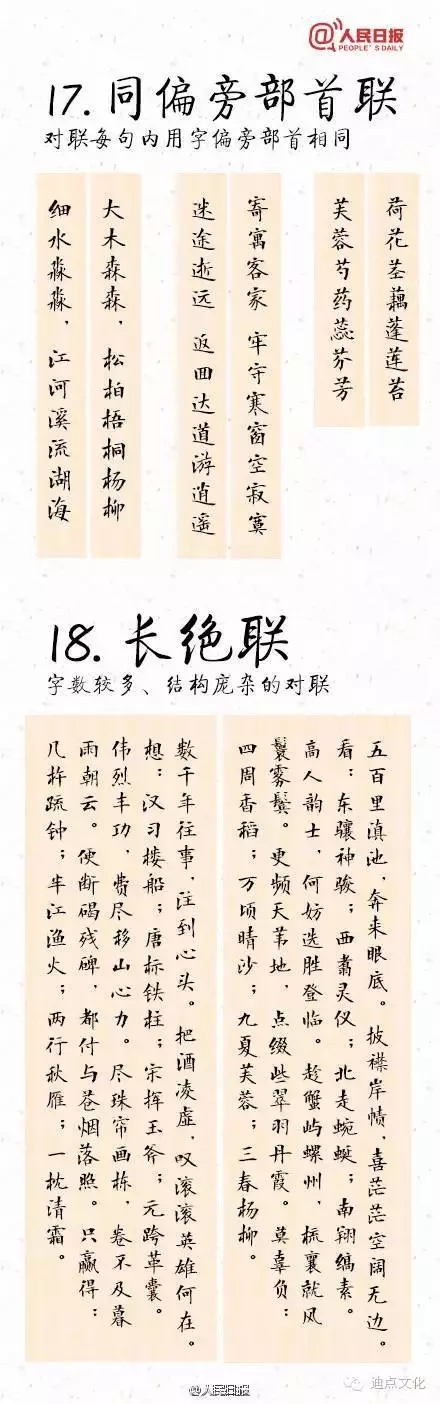 @人民日报
PEOPLE'S DAILY
17.同偏旁部首联
对联每句内用字偏旁部首相同
荷花茎藕蓬莲苔
芙蓉芍药蕊芬芳
寄寓客家 牢守寒窗空寂寞
迷途逝远 返回达道游逍遥
大木森森，松柏梧桐杨柳
细水淼淼，江河溪流湖海
18.长绝联
字数较多、结构庞杂的对联
五百里滇池，奔来眼底。披襟岸帻，喜茫茫空阔无边。
看：东骧神骏；西翥灵仪；北走蜿蜒；南翔缟素。
高人韵士，何妨选胜登临。趁蟹屿螺州，梳襄就风
鬟雾鬓。更频天苇地，点缀些翠羽丹霞。莫辜负：
四周香稻；万顷晴沙；九夏芙蓉；三春杨柳。
数千年往事，注到心头。把酒凌虚，叹滚滚英雄何在。
想：汉习楼船；唐标铁柱；宋挥玉斧；元跨革囊。
伟烈丰功，费尽移山心力。尽珠帘画栋，卷不及暮
雨朝云。便断碣残碑，都付与苍烟落照。只赢得：
几杵疏钟；半江渔火；两行秋雁；一枕清霜。
@人民日报
迪点文化